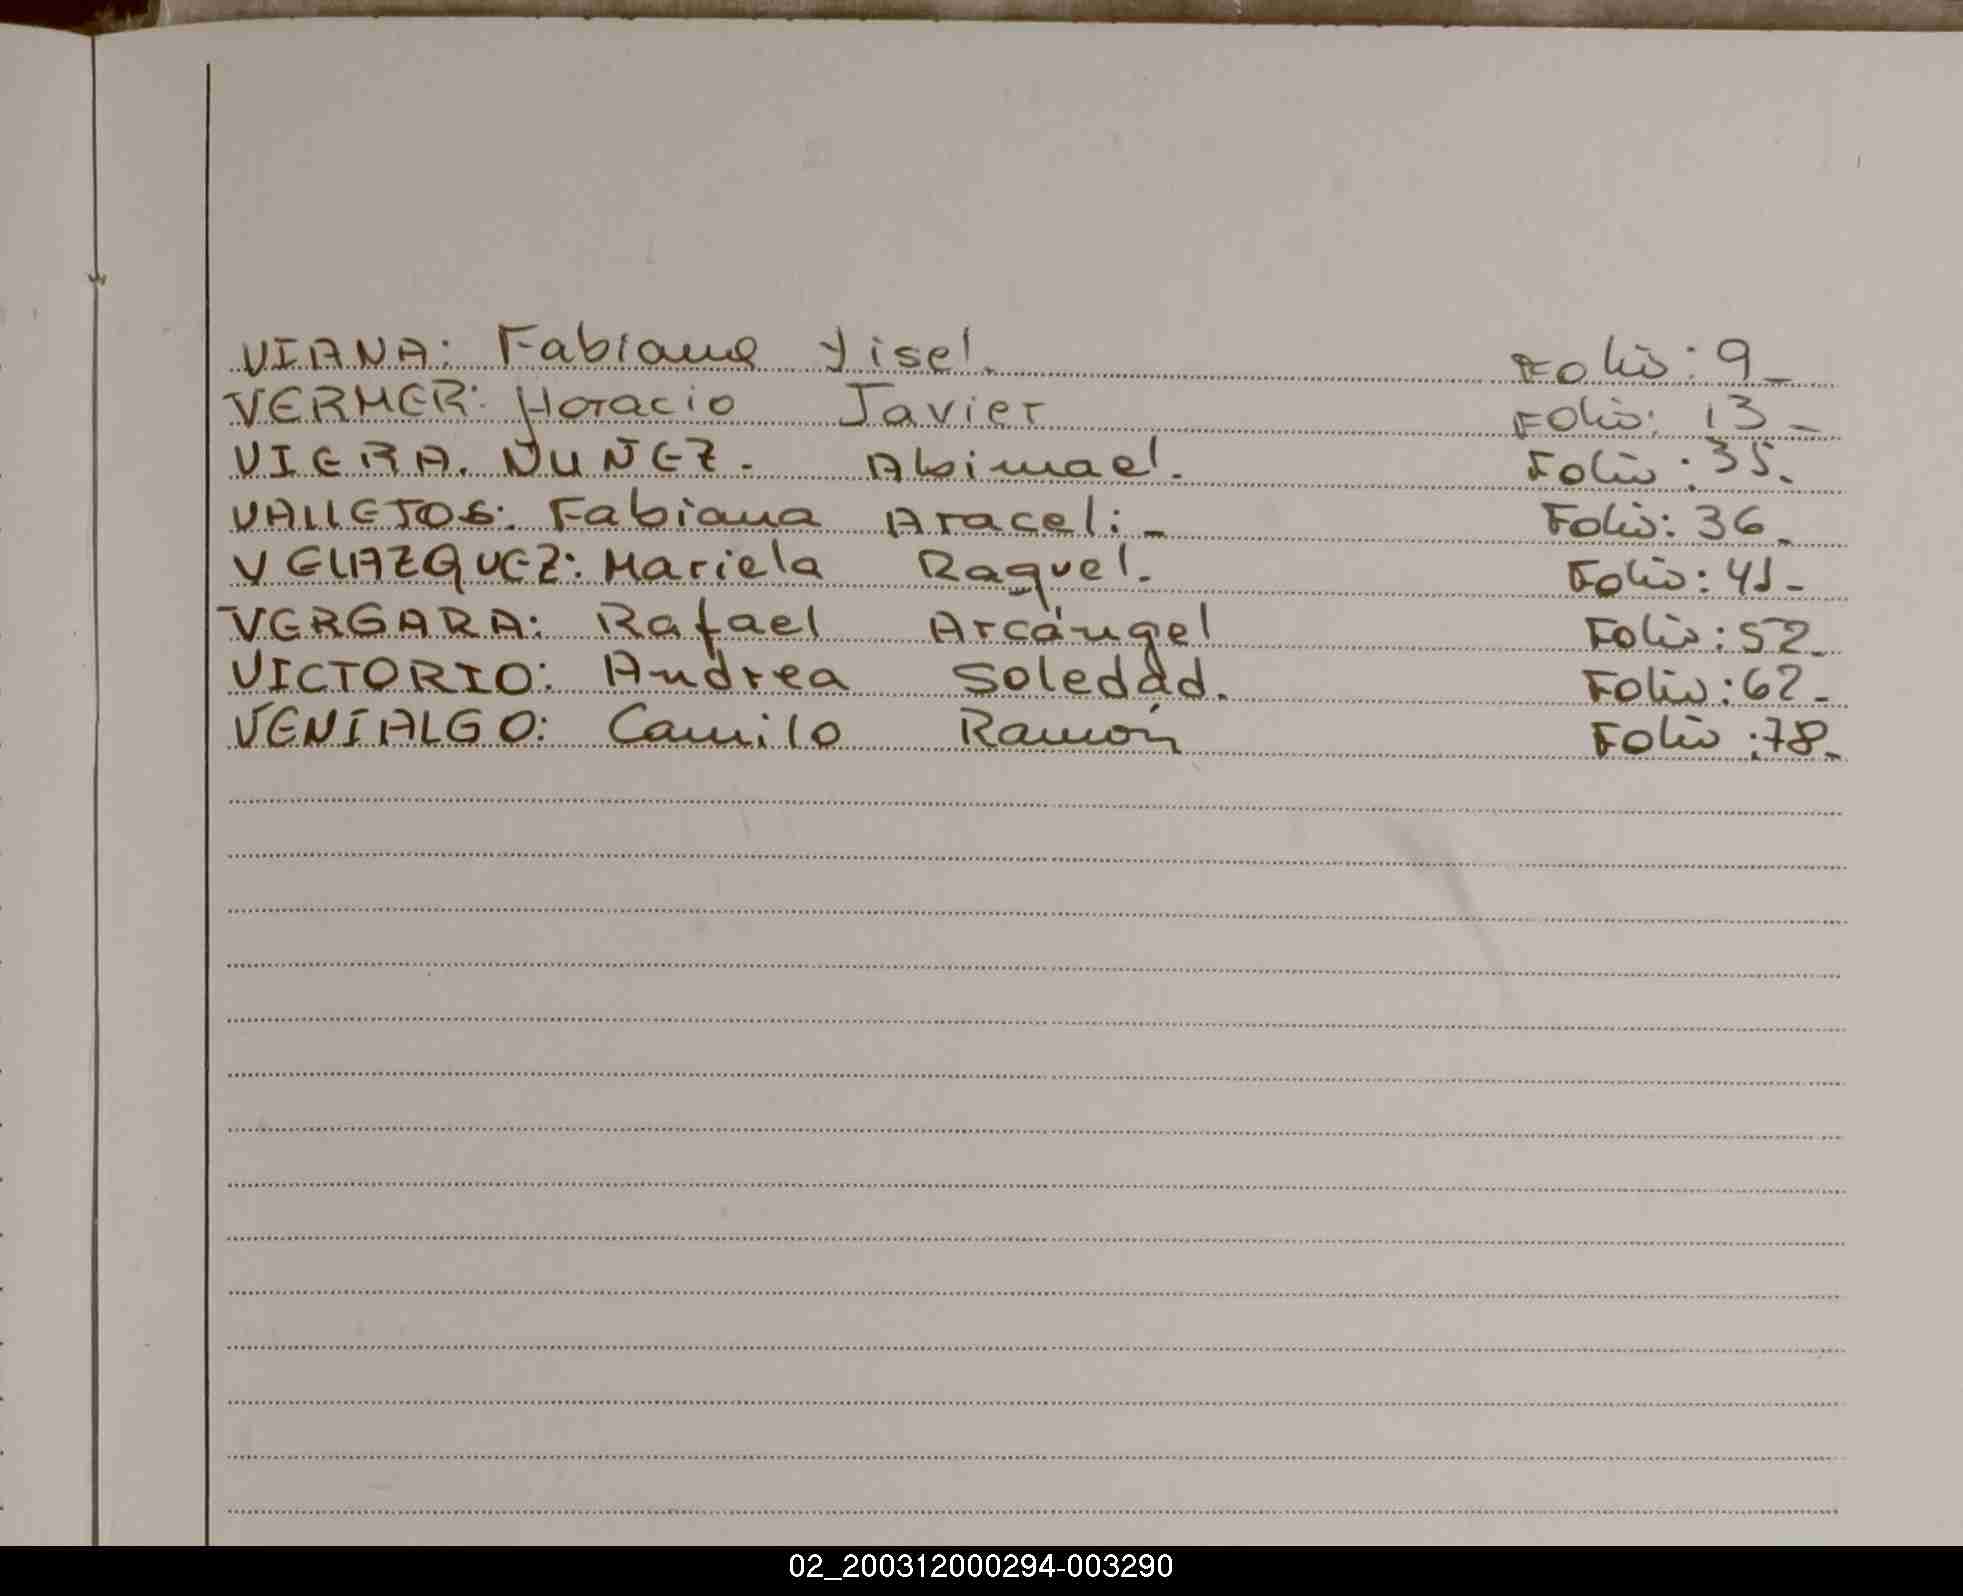 VIANA: Fabiana Yisel. Folio: 9_
VERMER: Horacio Javier Folio: 13_
VIERA. NUÑEZ. Abimael. Folio: 35.
VALLEJOS: Fabiana Araceli_ Folio: 36_
VELAZQUEZ: Mariela Raquel. Folio: 41-
VERGARA: Rafael Arcángel Folio: 52_
VICTORIO: Andrea Soledad. Folio: 62_
VENIALGO: Camilo Ramón Folio: 78_
02_200312000294-003290